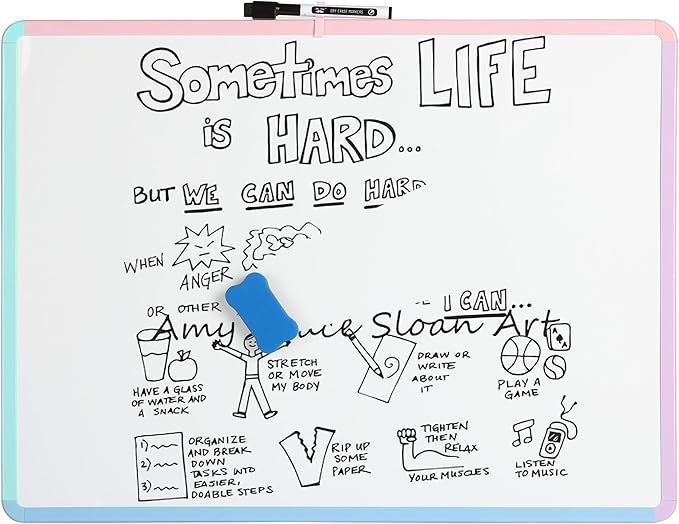 DRY ERASE MARKERS
Sometimes LIFE
is HARD...
BUT WE CAN DO HARD
WHEN
ANGER
OR OTHER
I CAN...
Amy Sloan Art
HAVE A GLASS
OF WATER AND
A SNACK
STRETCH
OR MOVE
MY BODY
DRAW OR
WRITE
ABOUT
IT
A
A
PLAY A
GAME
1)
2)
3)
ORGANIZE
AND BREAK
DOWN
TASKS INTO
EASIER,
DOABLE STEPS
RIP UP
SOME
PAPER
TIGHTEN
THEN
RELAX
YOUR MUSCLES
LISTEN
TO MUSIC